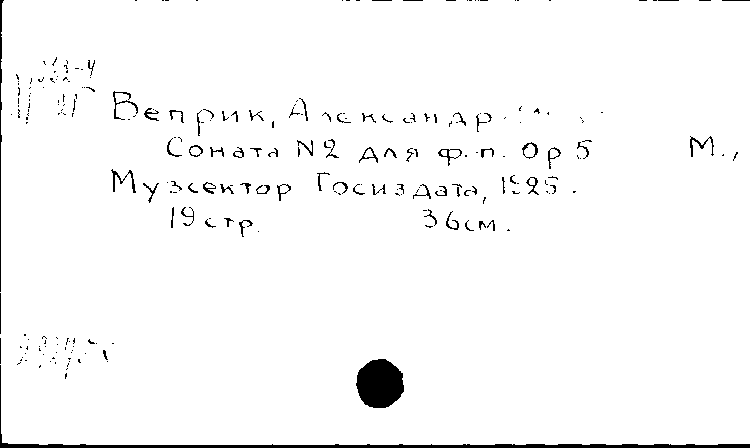 Веприк, Александр
Соната N2 для ф.п. Op 5 М.,
Музсектор Госиздата, 1925.
19 стр. 36 см.